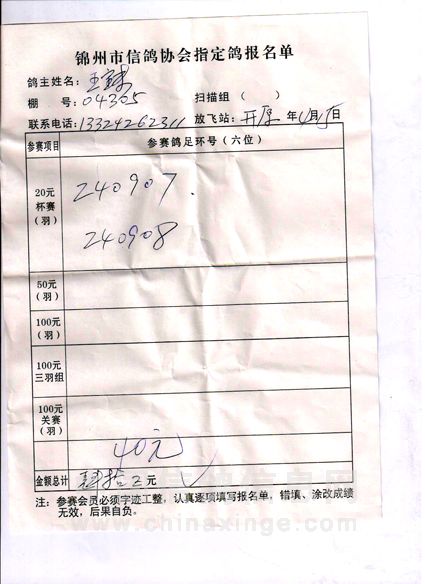 锦州市信鸽协会指定鸽报名单
鸽主姓名：王
棚 号：04305 扫描组（ ）
联系电话：13324262311 放飞站：开原 年 月 日
参赛项目 参赛鸽足环号（六位）
20元
杯赛
（羽）
240907
240908
50元
（羽）
100元
（羽）
100元
三羽组
100元
关赛
（羽）
40元
金额总计 肆拾 元
注：参赛会员必须字迹工整，认真逐项填写报名单，错填、涂改成绩
无效，后果自负。
www.chinaxinge.com